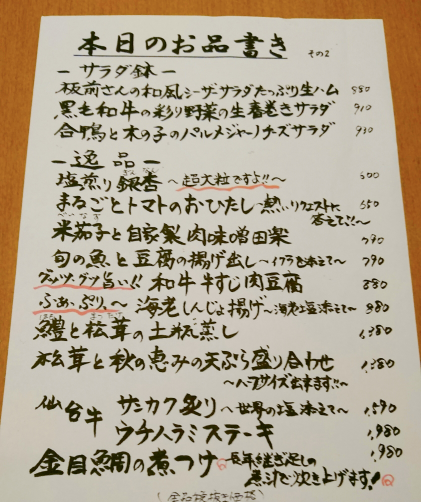 本日のお品書き その2
－サラダ鉢－
板前さんの和風シーザーサラダたっぷり生ハム 880
黒毛和牛の彩り野菜の生春巻きサラダ 910
合鴨と木の子のパルメジャーノチズサラダ 930
－逸品－
塩煎り銀杏 ～超大粒ですよ!!～ 600
まるごとトマトのおひたし～熱いリクエストに 550
答えて!!～
米茄子と自家製肉味噌田楽 790
旬の魚と豆腐の揚げ出し～イクラを添えて～ 790
グツグツ旨い!! 和牛すじ肉豆腐 880
ふあっ、ぷりっ、～ 海老しんじょ揚げ～海老塩添えて～ 980
鱧と松茸の土瓶蒸し 1,380
松茸と秋の恵みの天ぷら盛り合わせ 1,380
～ハーフサイズ出来ます!!～
仙台牛 サンカク炙り～世界の塩添えて～ 1,590
ウチハラミステーキ 1,980
金目鯛の煮つけ 長年継ぎ足しの 1,980
煮汁で炊き上げます!